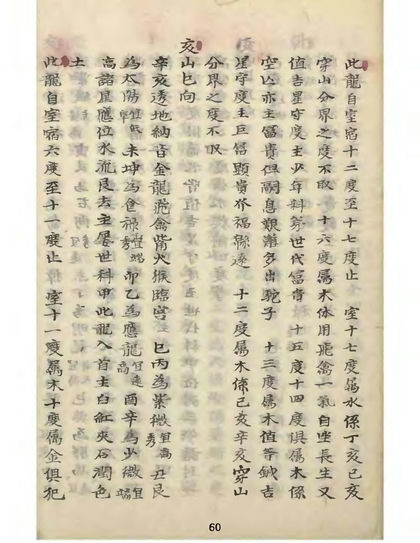 此龍自室宿十二度至十七度止　室十七度屬水係丁亥己亥
穿山分界之度不取　十六度屬木体用飛禽一氣自坐長生又
值吉星守度主少年科第世代富貴　十五度十四度俱屬木係
空亡亦主富貴但嗣息艱難多出駝子　十三度屬木值等鉞吉
星守度主巨富顯貴齐福綿遠　十二度屬木係己亥辛亥穿山
分界之度不取
亥山巳向
辛亥透地納音金龍飛禽觜火猴臨宮　巳丙為紫微宜高秀 丑艮
為太陽宜低 未坤為食祿宜端秀 卯乙為應龍宜遠高 酉辛為少微宜端
高諸星應位水流艮去主屡世科甲此龍入首主白紅夾石潤色
土
此龍自室宿六度至十一度止　室十一度屬木十度屬金俱犯
60